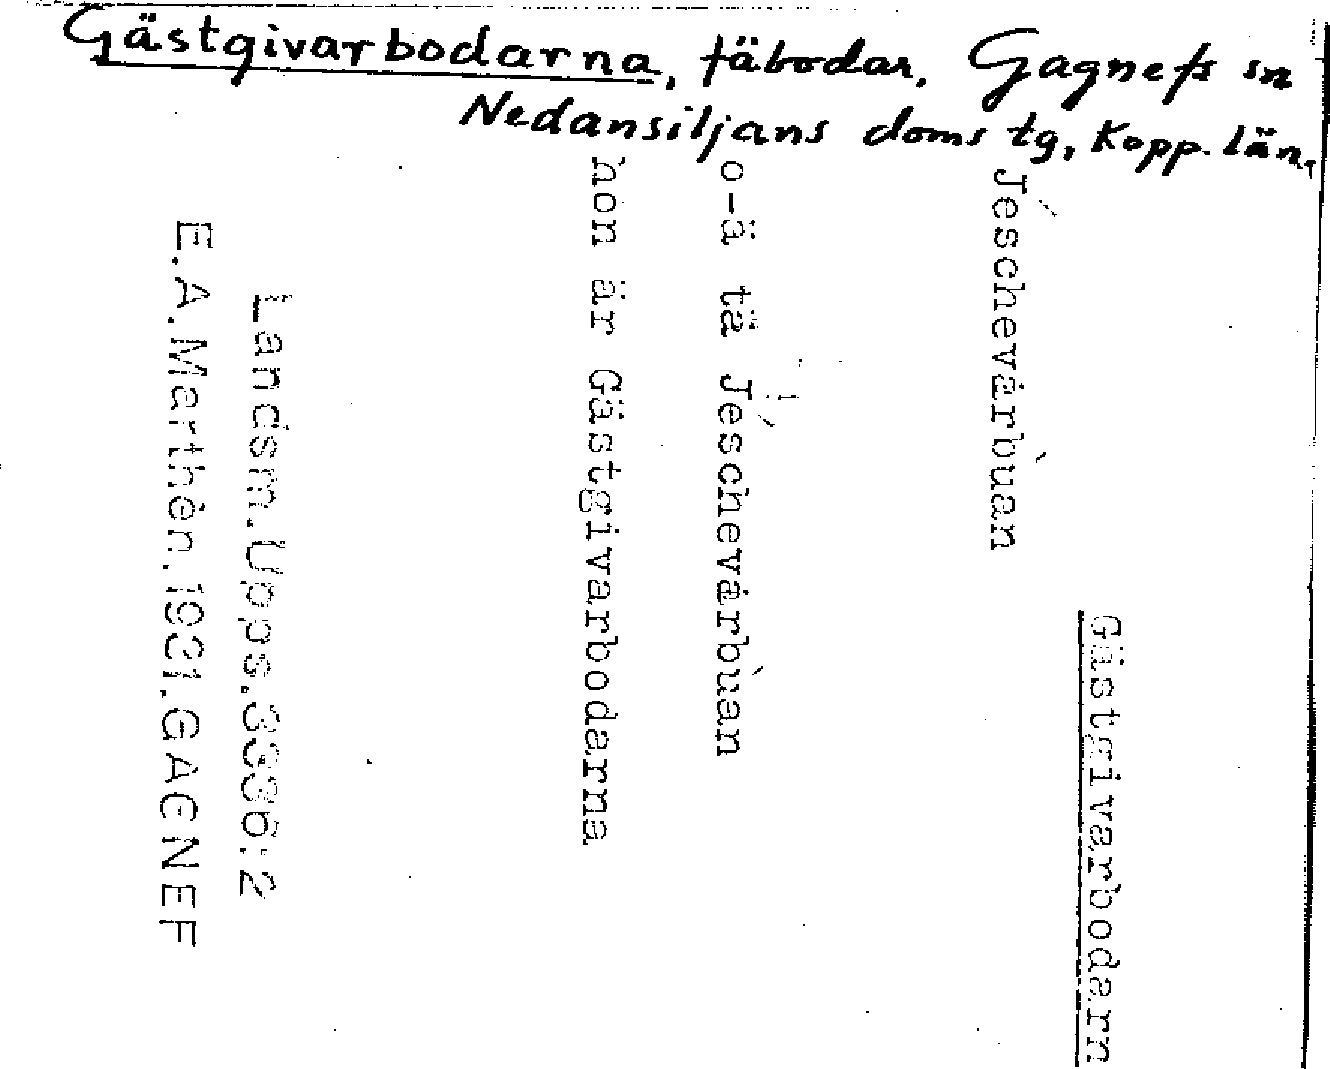 Gästgivarbodarna, fäbodar. Gagnefs sn
Nedansiljans doms tg, Kopp. län.
Gästgivarbodarn
Jéschevárbùan
o-ä tä Jéschevárbùan
hon är Gästgivarbodarna
Landsm. Upps. 3336:2
E.A. Marthén. 1931. GAGNEF